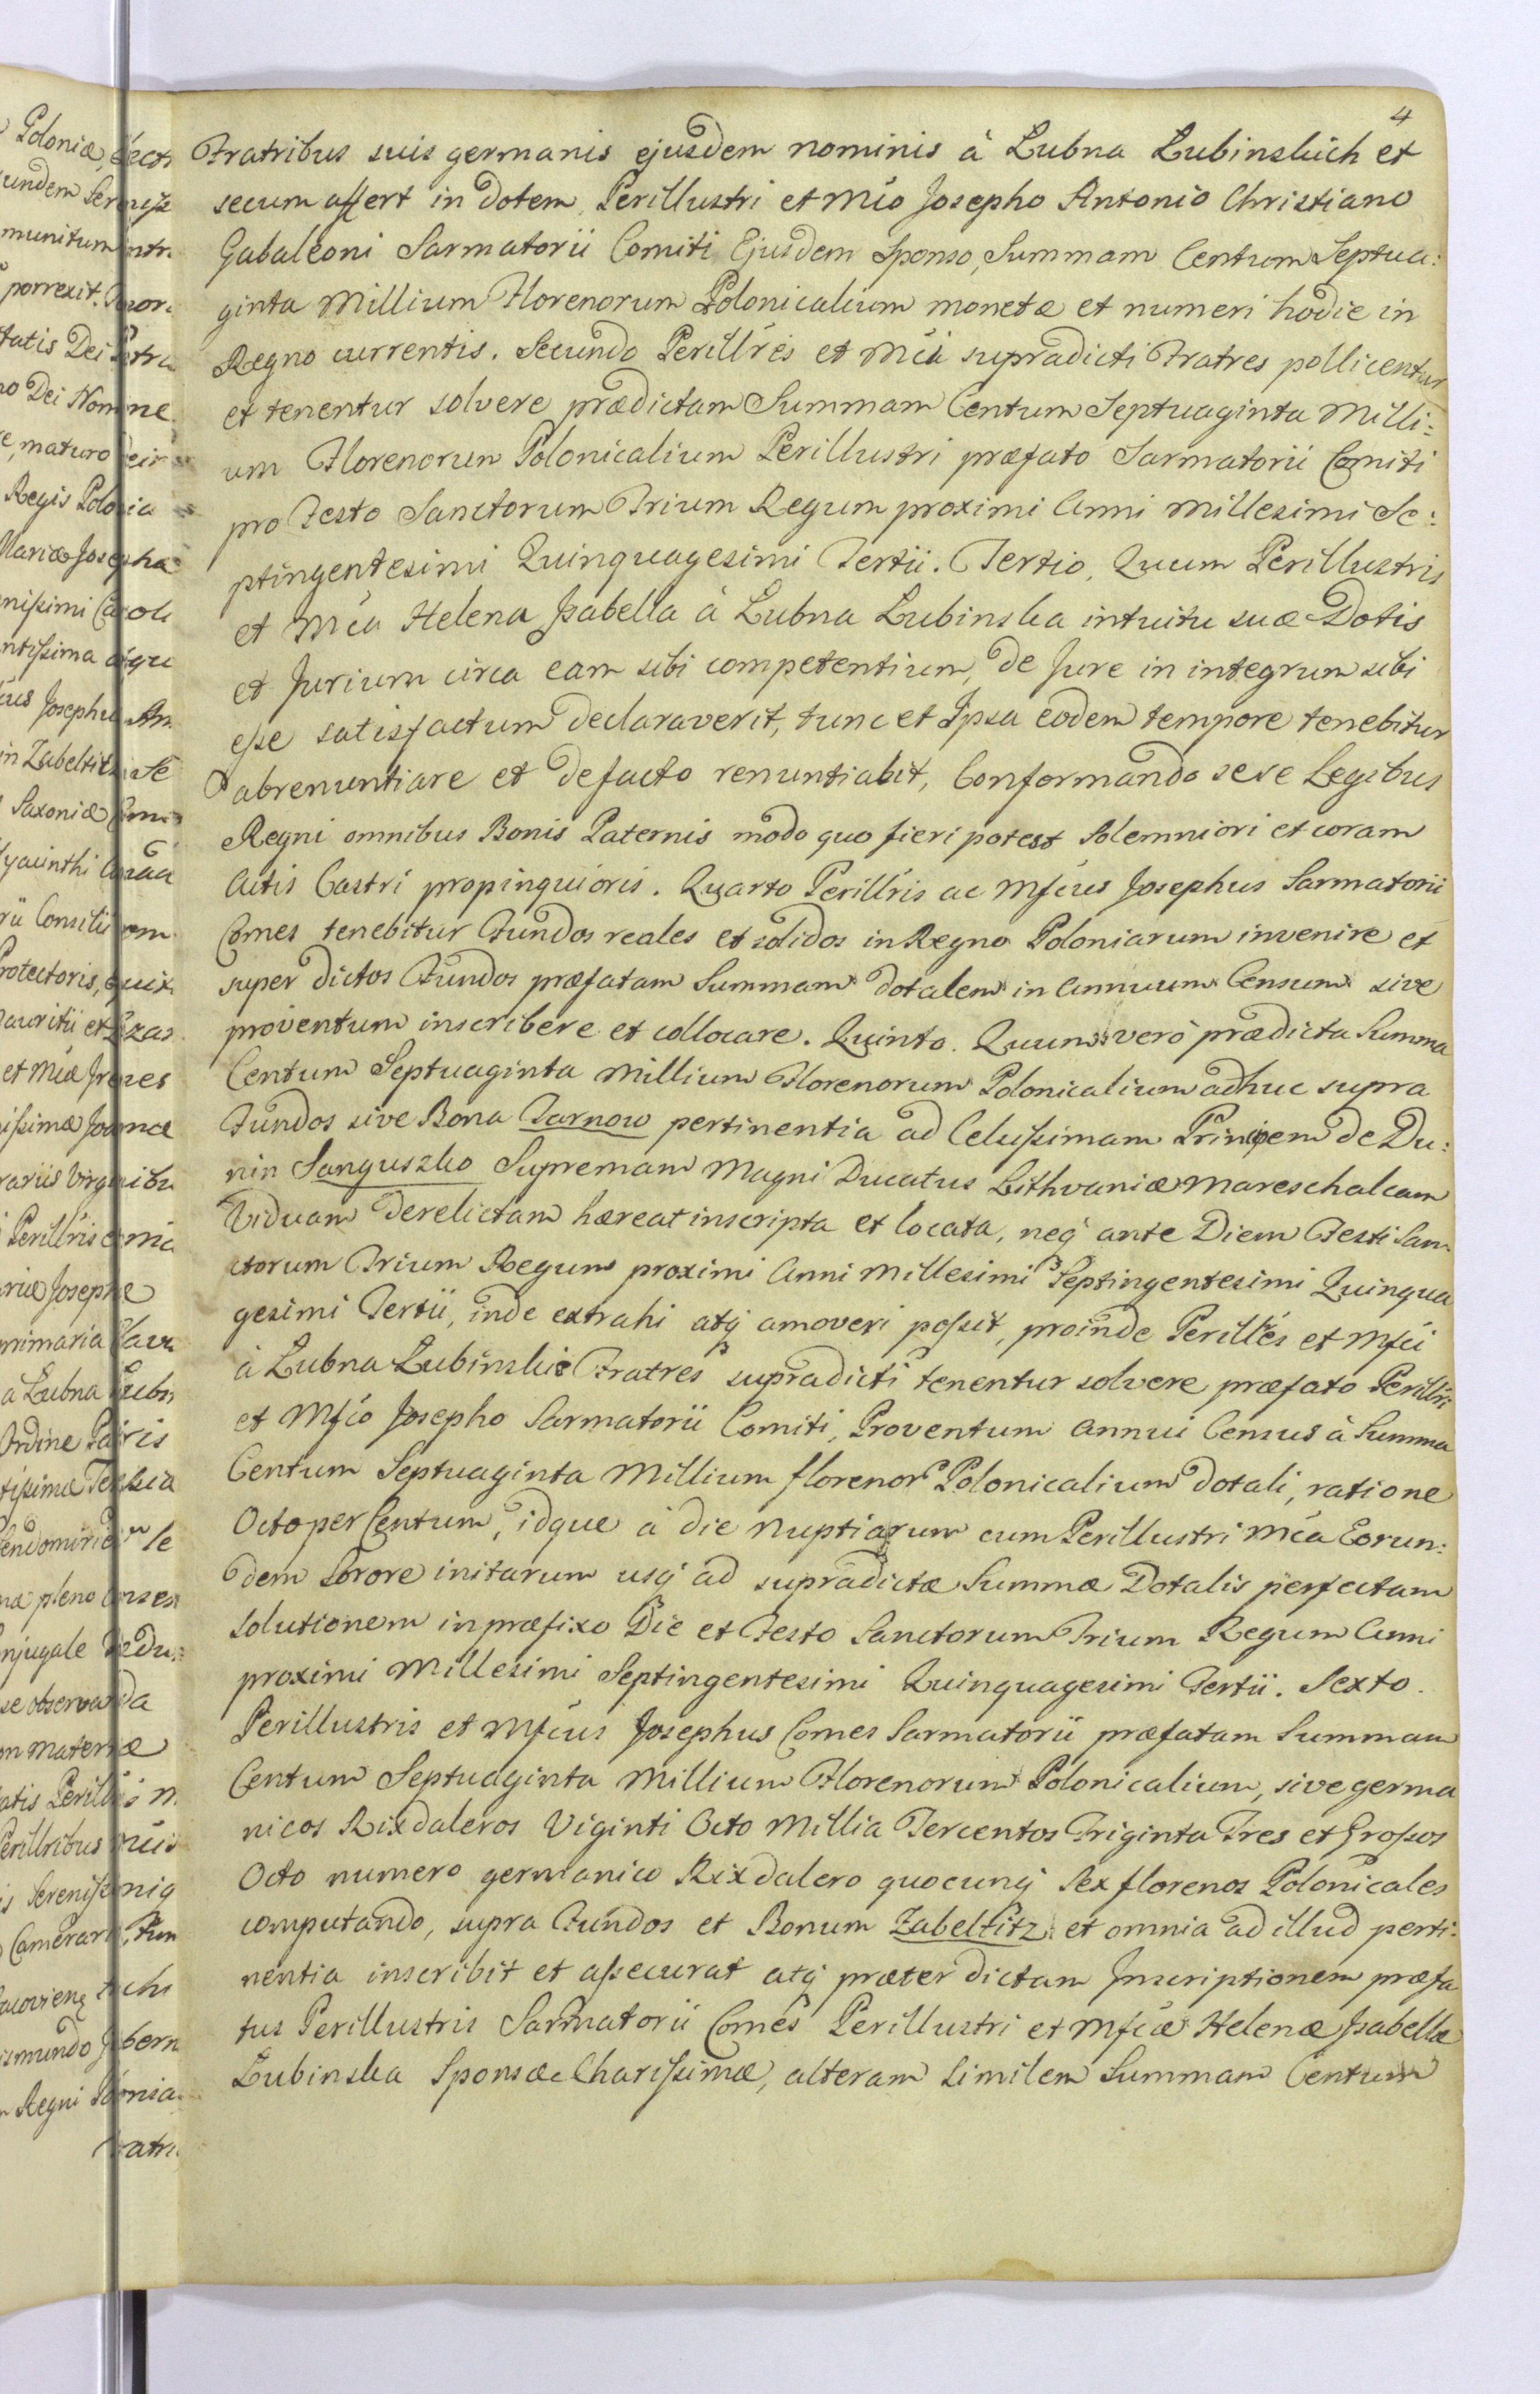 4
Fratribus suis germanis ejusdem nominis à Łubna Łubinskich et
secum affert in dotem, Perillustri et Mco Josepho Antonio Christiano
Gabaleoni Sarmatorii Comiti Ejusdem Sponso, Summam Centum Septua:
ginta Millium Florenorum Polonicalium monetæ et numeri hodie in
Regno currentis. Secundo Perillres et Mci supradicti Fratres pollicentur
et tenentur solvere prædictam Summam Centum Septuaginta Milli:
um Florenorum Polonicalium Perillustri præfato Sarmatorii Comiti
pro Festo Sanctorum Trium Regum proximi Anni Millesimi Se:
ptingentesimi Quinquagesimi Tertii. Tertio, Quum Perillustris
et Mca Helena Isabella à Łubna Łubinska intuitu suæ Dotis
et Jurium circa eam sibi competentium, de Jure in integrum sibi
eſse satisfactum declaraverit, tunc et Ipsa eodem tempore tenebitur
abrenuntiare et defacto renuntiabit, Conformando sese Legibus
Regni omnibus Bonis Paternis modo quo fieri potest solemniori et coram
Actis Castri propinquioris. Quarto Perillris ac Mfcus Josephus Sarmatorii
Comes tenebitur Fundos reales et solidos in Regno Poloniarum invenire et
super dictos Fundos præfatam Summam dotalem in Annuum Censum sive
proventum inscribere et collocare. Quinto. Quum verò prædicta Summa
Centum Septuaginta Millium Florenorum Polonicalium adhuc supra
Fundos sive Bona Tarnow pertinentia ad Celsiſsimam Principem de Du:
nin Sanguszko Supremam Magni Ducatus Lithvaniæ Mareschalcam
Viduam derelictam hæreat inscripta et locata, neq ante Diem Festi San
ctorum Trium Regum proximi Anni Millesimi Septingentesimi Quinqua
gesimi Tertii, inde extrahi atq amoveri poſsit, proinde Perilltes et Mfci
à Łubna Łubinskie Fratres supradicti tenentur solvere præfato Perillri
et Mfco Josepho Sarmatorii Comiti, Proventum annui Census à Summa
Centum Septuaginta Millium florenor Polonicalium dotali, ratione
Octo per Centum, idque à die Nuptiarum cum Perillustri Mca Eorun:
dem Sorore initarum usq ad supradictæ Summæ Dotalis perfectam
solutionem in præfixo Die et Festo Sanctorum Trium Regum Anni
proximi Millesimi Septingentesimi Quinquagesimi Tertii. Sexto.
Perillustris et Mfcus Josephus Comes Sarmatorii præfatam Summam
Centum Septuaginta Millium Florenorum Polonicalium, sive germa
nicos Rixdaleros Viginti Octo Millia Tercentos Triginta Tres et Groſsos
Octo numero germanico Rixdalero quocunq sex florenos Polonicales
computando, supra Fundos et Bonum Zabeltitz et omnia ad illud perti:
nentia inscribit et aſsecurat atq præter dictam Inscriptionem præfa
tus Perillustris Sarmatorii Comes Perillustri et Mfcæ Helenæ Isabellæ
Łubinska Sponsæ Chariſsimæ, alteram similem Summam Centum